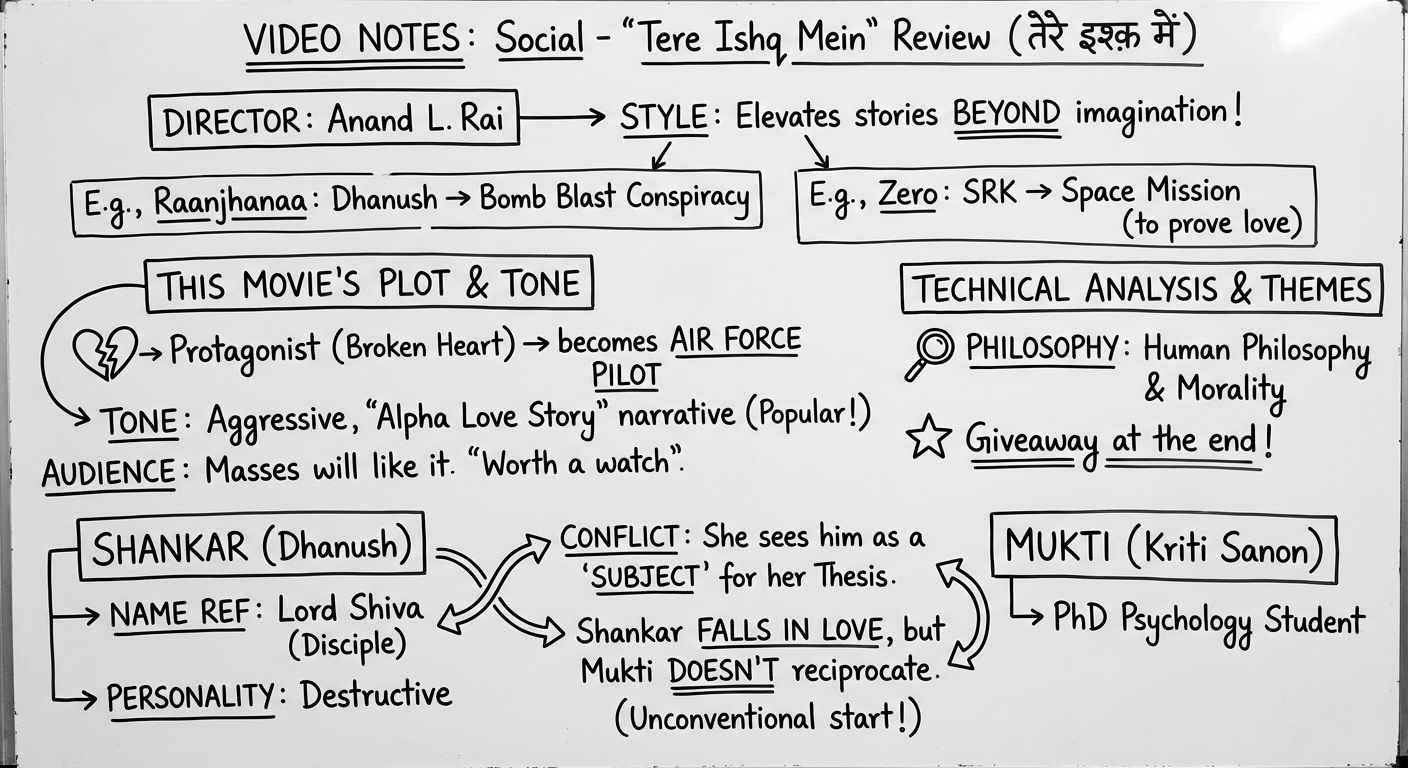 VIDEO NOTES: Social - "Tere Ishq Mein" Review (तेरे इश्क़ में)
DIRECTOR: Anand L. Rai → STYLE: Elevates stories BEYOND imagination!
E.g., Raanjhanaa: Dhanush → Bomb Blast Conspiracy
E.g., Zero: SRK → Space Mission
(to prove love)
THIS MOVIE'S PLOT & TONE
→ Protagonist (Broken Heart) → becomes AIR FORCE
PILOT
TONE: Aggressive, "Alpha Love Story" narrative (Popular!)
AUDIENCE: Masses will like it. "Worth a watch".
TECHNICAL ANALYSIS & THEMES
PHILOSOPHY: Human Philosophy
& Morality
Giveaway at the end!
SHANKAR (Dhanush)
NAME REF: Lord Shiva
(Disciple)
PERSONALITY: Destructive
CONFLICT: She sees him as a
'SUBJECT' for her Thesis.
Shankar FALLS IN LOVE, but
Mukti DOESN'T reciprocate.
(Unconventional start!)
MUKTI (Kriti Sanon)
PhD Psychology Student